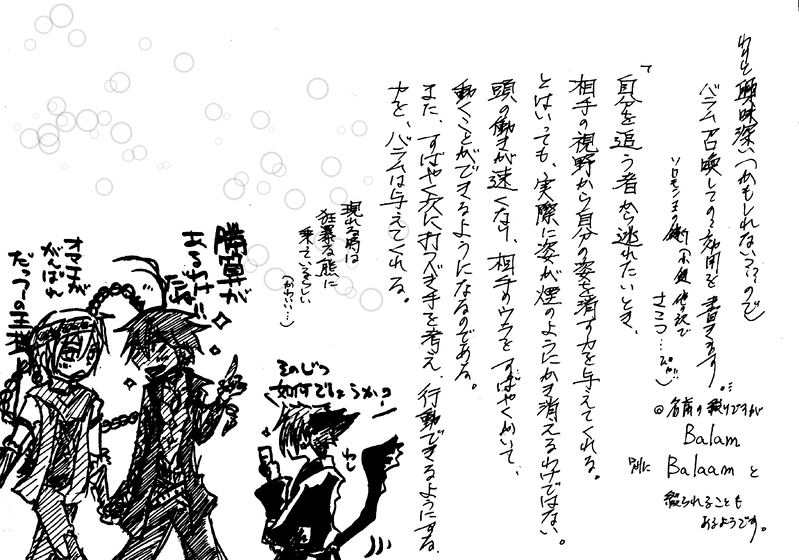 わりと興味深い(かもしれない??)ので
バラム召喚しての効用を書きます。
ソロモン王の鍵
「自分を追う者から逃れたいとき、
相手の視野から自分の姿を消す力を与えてくれる。
とはいっても、実際に姿が煙のようにかき消えるわけではない。
頭の働きが速くなり、相手のウラをすばやくかいて、
動くことができるようになるのである。
また、すばやく次に打つべき手を考え、行動できるようにする
力を、バラムは与えてくれる。
◎名前の綴りですが
Balam
別に Balaam と
綴られることも
あるようです。
現れる時は
狂暴な熊に
乗っているらしい
(かわいい…)
勝算が
あるわけ
だ!!
オマチが
がんばれ
だっつの主様
そのじつ
如何でしょうか?